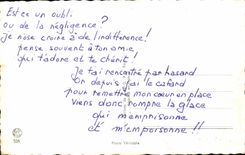 Est ce un oubli
ou de la négligence?
Je n'ose croire à de l'indifférence!
pense souvent à ton amie
Qui t'adore et te chérit!
Je t'ai rencontré par hasard
Or depuis j'ai le cafard
pour remettre mon cœur en place
viens donc rompre la glace
qui m'emprisonne
et m'empoisonne!!